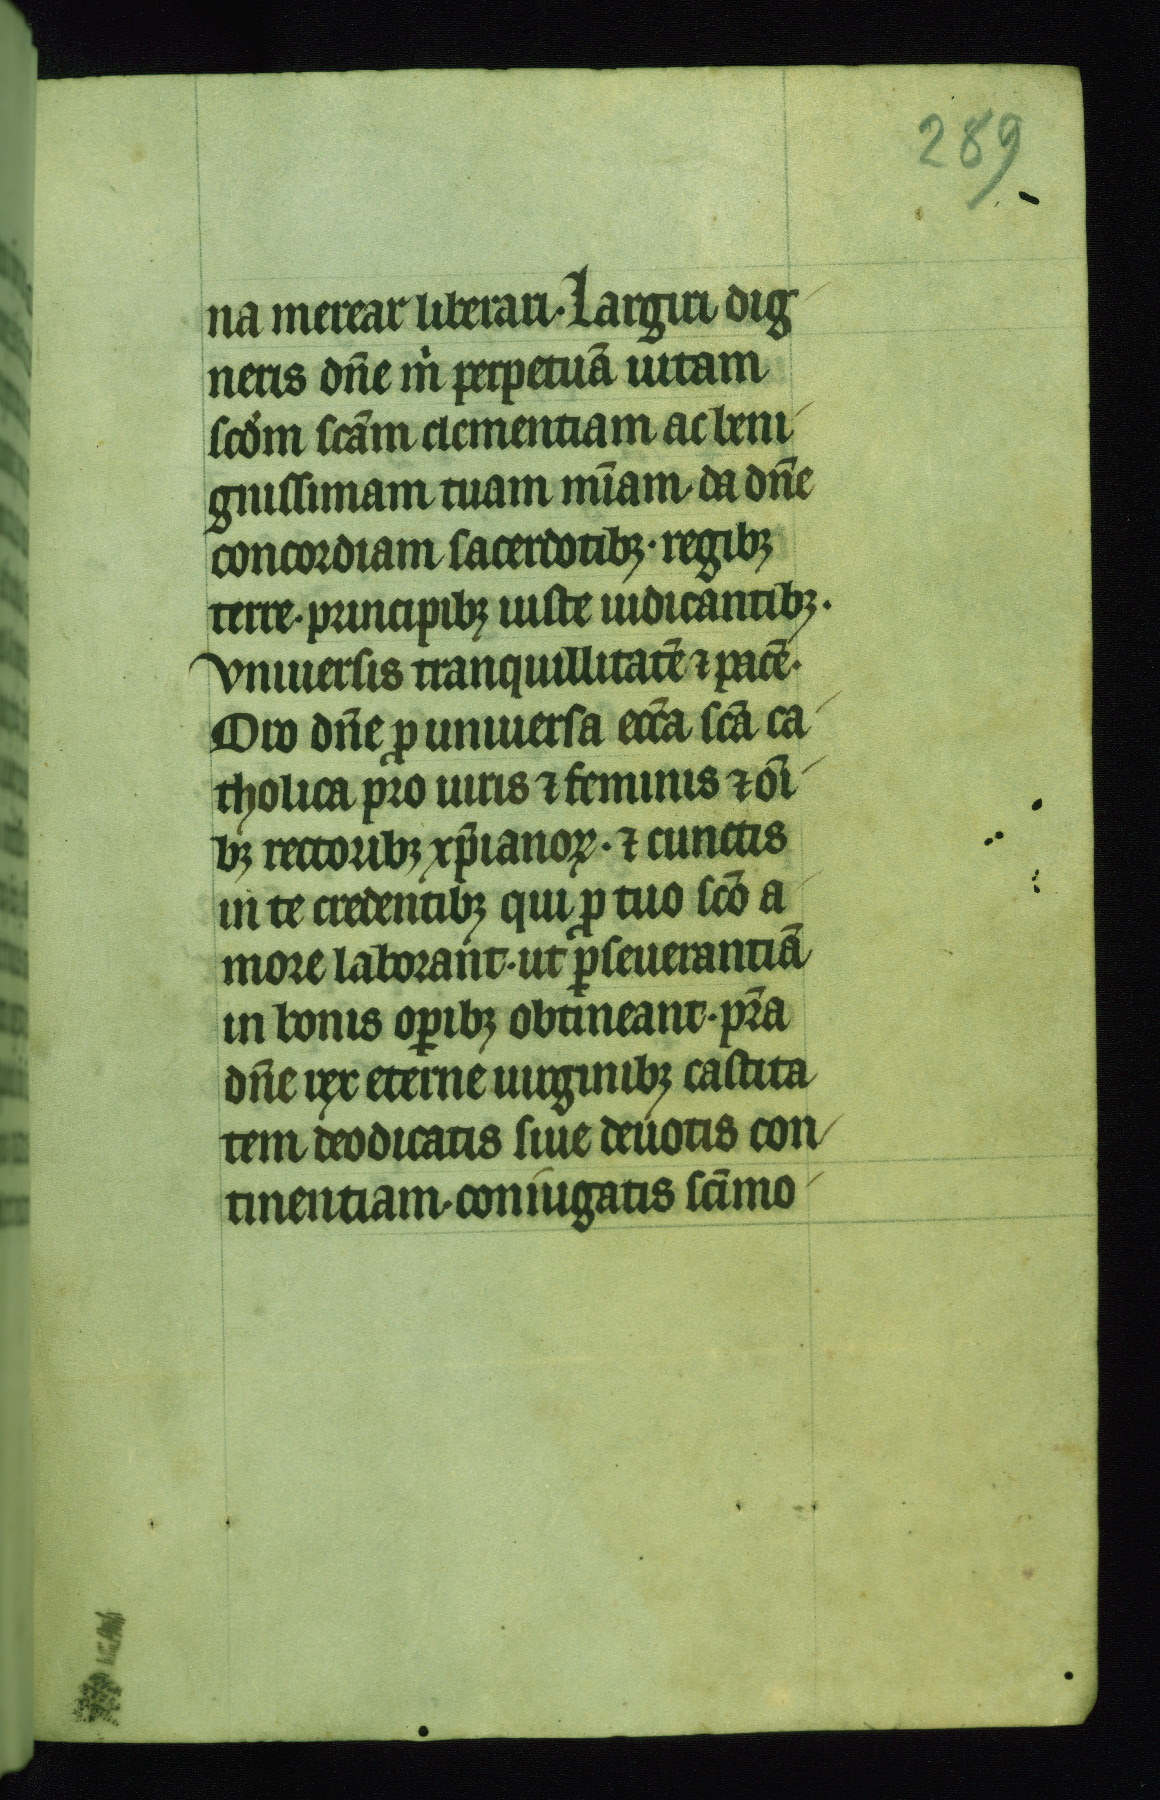 289
na merear liberari. Largiri dig
neris dn̄e m̍ perpetuā uitam
scd̓m scām clementiam ac beni
gnissimam tuam mīam. da dn̄e
concordiam sacerdotibꝫ. regibꝫ
terre. principibꝫ iuste iudicantibꝫ.
vniuersis tranquillitatē ⁊ pacē.
Oro dn̄e ꝓ uniuersa ecc̄a scā ca
tholica pro uiris ⁊ feminis ⁊ oī
bꝫ rectoribꝫ xp̄ianoꝝ. ⁊ cunctis
in te credentibꝫ qui ꝓ tuo scō a
more laborant. ut ꝑseuerantiā
in bonis oꝑibꝫ obtineant. pr̄a
dn̄e rex eterne uirginibꝫ castita
tem deodicatis siue deuotis con
tinentiam. coniugatis scīmo